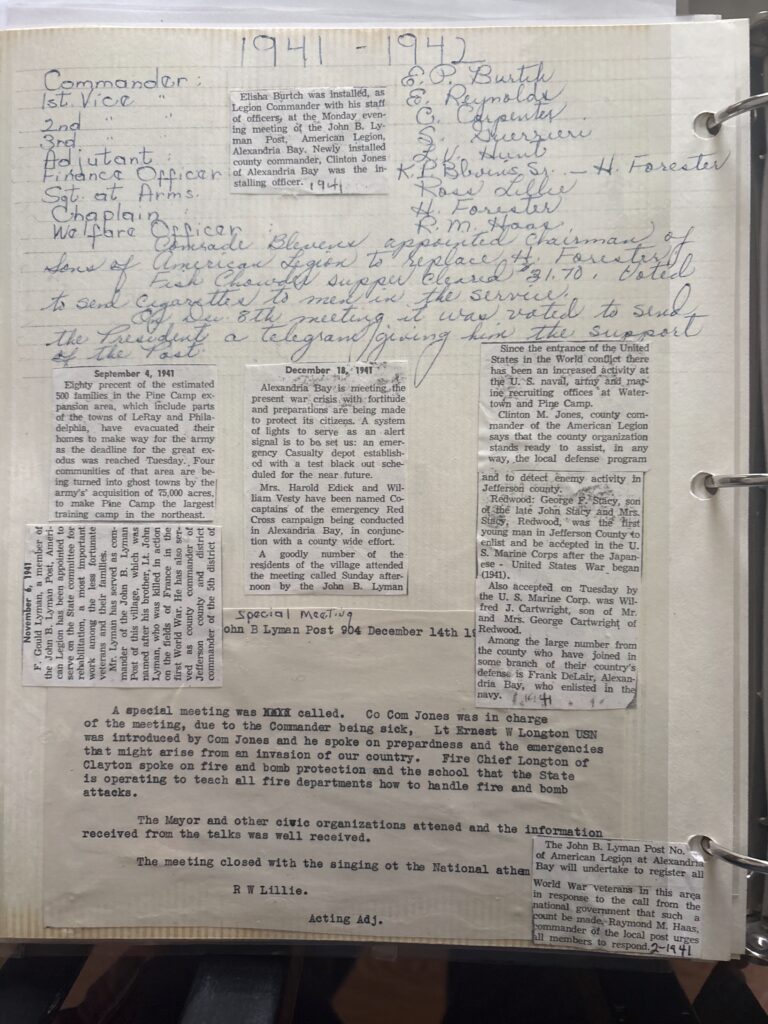 1941 - 1942
Commander :
1st. Vice "
2nd " "
3rd " "
Adjutant :
Finance Officer
Sgt. at Arms.
Chaplain :
Welfare Officer :
Elisha Burtch was installed, as
Legion Commander with his staff
of officers, at the Monday eve-
ning meeting of the John B. Ly-
man Post, American Legion,
Alexandria Bay. Newly installed
county commander, Clinton Jones
of Alexandria Bay was the in-
stalling officer. 1941
E. P. Burtch
E. Reynolds
C. Carpenter
S. Guerrieri
Hunt
K. P. Blevins, Sr. - H. Forester
Ross Lillie
H. Forester
R. M. Haas
Comrade Blevens appointed Chairman of
Sons of American Legion to replace H. Forester
Fish Chowder supper cleared $31.70. Voted
to send cigarettes to men in the service.
At Dec 8th meeting it was voted to send
the President a telegram giving him the support
of the Post
September 4, 1941
Eighty precent of the estimated
500 families in the Pine Camp ex-
pansion area, which include parts
of the towns of LeRay and Phila-
delphia, have evacuated their
homes to make way for the army
as the deadline for the great ex-
odus was reached Tuesday. Four
communities of that area are be-
ing turned into ghost towns by the
army's acquisition of 75,000 acres,
to make Pine Camp the largest
training camp in the northeast.
November 6, 1941
F. Gould Lyman, a member of
the John B. Lyman Post, Ameri-
can Legion has been appointed to
serve on the State committee for
rehabilitation, a most important
work among the less fortunate
veterans and their families.
Mr. Lyman has served as com-
mander of the John B. Lyman
Post of this village, which was
named after his brother, Lt. John
Lyman, who was killed in action
on the fields of France in the
first World War. He has also ser-
ved as county commander of
Jefferson county and district
commander of the 5th district of
December 18, 1941
Alexandria Bay is meeting the
present war crisis with fortitude
and preparations are being made
to protect its citizens. A system
of lights to serve as an alert
signal is to be set us: an emer-
gency Casualty depot establish-
ed with a test black out sche-
duled for the near future.
Mrs. Harold Edick and Wil-
liam Vesty have been named Co-
captains of the emergency Red
Cross campaign being conducted
in Alexandria Bay, in conjunc-
tion with a county wide effort.
A goodly number of the
residents of the village attended
the meeting called Sunday after-
noon by the John B. Lyman
Since the entrance of the United
States in the World conflict there
has been an increased activity at
the U. S. naval, army and mar-
ine recruiting offices at Water-
town and Pine Camp.
Clinton M. Jones, county com-
mander of the American Legion
says that the county organization
stands ready to assist, in any
way, the local defense program
and to detect enemy activity in
Jefferson county.
Redwood: George F. Stacy, son
of the late John Stacy and Mrs.
Stacy, Redwood, was the first
young man in Jefferson County to
enlist and be accepted in the U.
S. Marine Corps after the Japan-
ese - United States War began
(1941).
Also accepted on Tuesday by
the U. S. Marine Corp. was Wil-
fred J. Cartwright, son of Mr.
and Mrs. George Cartwright of
Redwood.
Among the large number from
the county who have joined in
some branch of their country's
defense is Frank DeLair, Alexan-
dria Bay, who enlisted in the
navy.
Special Meeting
ohn B Lyman Post 904 December 14th 19
A special meeting was called. Co Com Jones was in charge
of the meeting, due to the Commander being sick, Lt Ernest W Longton USN
was introduced by Com Jones and he spoke on prepardness and the emergencies
that might arise from an invasion of our country. Fire Chief Longton of
Clayton spoke on fire and bomb protection and the school that the State
is operating to teach all fire departments how to handle fire and bomb
attacks.
The Mayor and other civic organizations attened and the information
received from the talks was well received.
The meeting closed with the singing ot the National athem
R W Lillie.
Acting Adj.
The John B. Lyman Post No.
of American Legion at Alexandria
Bay will undertake to register all
World War veterans in this area
in response to the call from the
national government that such a
count be made. Raymond M. Haas,
commander of the local post urges
all members to respond. 2-1941